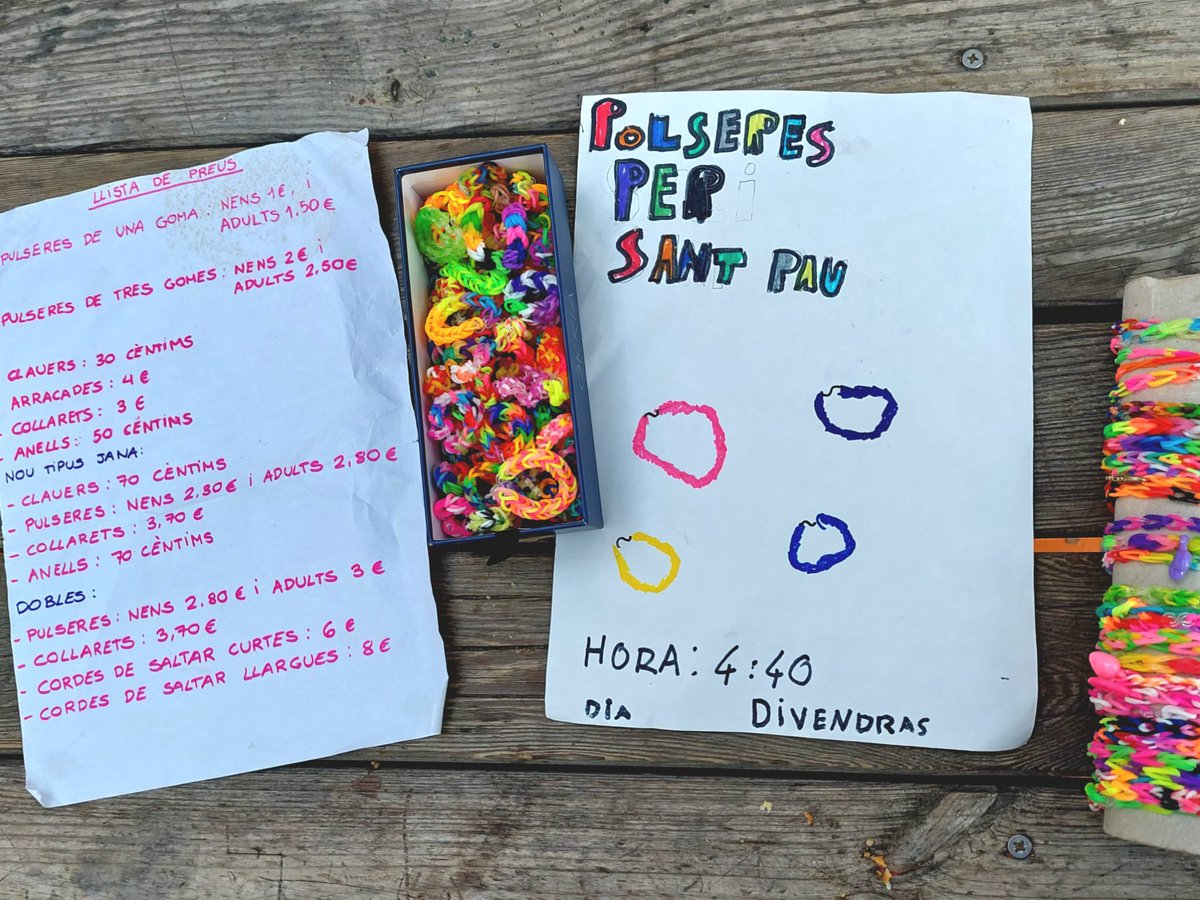 LLISTA DE PREUS
PULSERES DE UNA GOMA: NENS 1€, i
ADULTS 1,50€
PULSERES DE TRES GOMES: NENS 2€ i
ADULTS 2,50€
CLAUERS: 30 CÈNTIMS
ARRACADES: 4€
- COLLARETS: 3€
- ANELLS: 50 CÉNTIMS
NOU TIPUS JANA:
- CLAUERS: 70 CÈNTIMS
- PULSERES: NENS 2,30€ i ADULTS 2,80€
- COLLARETS: 3,70€
- ANELLS: 70 CÈNTIMS
DOBLES:
- PULSERES: NENS 2,80€ i ADULTS 3€
- COLLARETS: 3,70€
- CORDES DE SALTAR CURTES: 6€
- CORDES DE SALTAR LLARGUES: 8€
POLSERES
PER
SANT PAU
HORA: 4:40
DIA DIVENDRAS